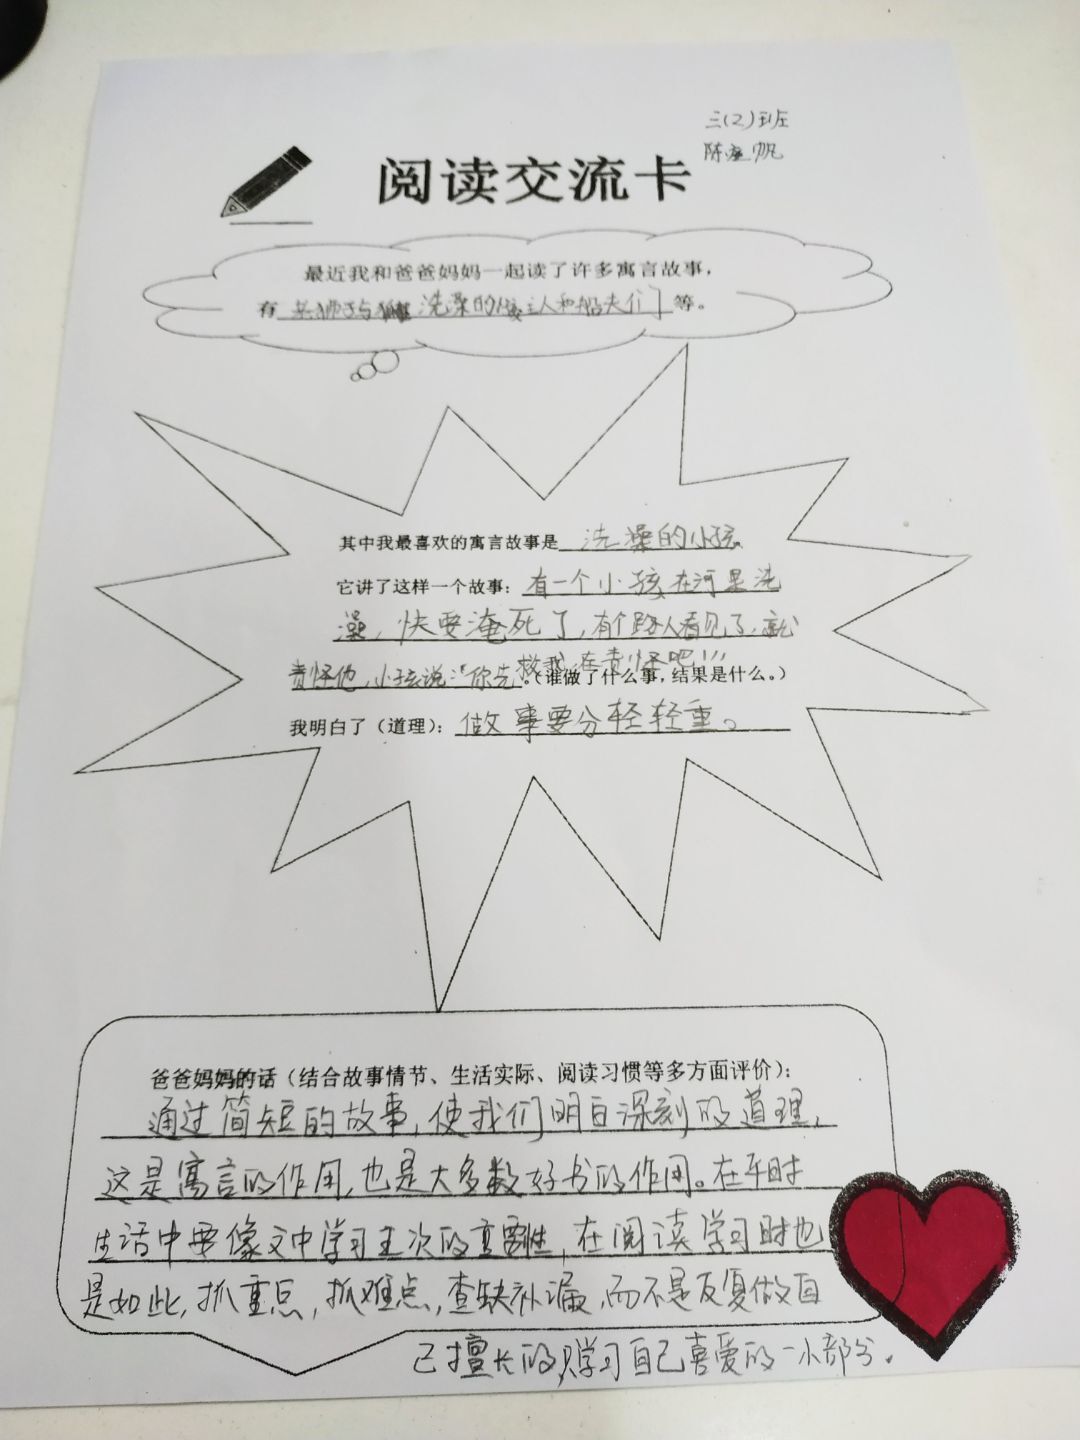 三(2)班
陈 帆
阅读交流卡
最近我和爸爸妈妈一起读了许多寓言故事，
有 老狮子与 洗澡的 主人和船夫们 等。
其中我最喜欢的寓言故事是 洗澡的小孩
它讲了这样一个故事：有一个小孩在河里洗
澡，快要淹死了，有个路人看见了，就
责怪他，小孩说："你先救我，在责怪吧!!!
。（谁做了什么事，结果是什么。）
我明白了（道理）：做事要分轻轻重。
爸爸妈妈的话（结合故事情节、生活实际、阅读习惯等多方面评价）：
通过简短的故事，使我们明白深刻的道理，
这是寓言的作用，也是大多数好书的作用。在平时
生活中要像文中学习主次的重要性，在阅读学习时也
是如此，抓重点，抓难点，查缺补漏，而不是反复做自
己擅长的，学习自己喜爱的一小部分。